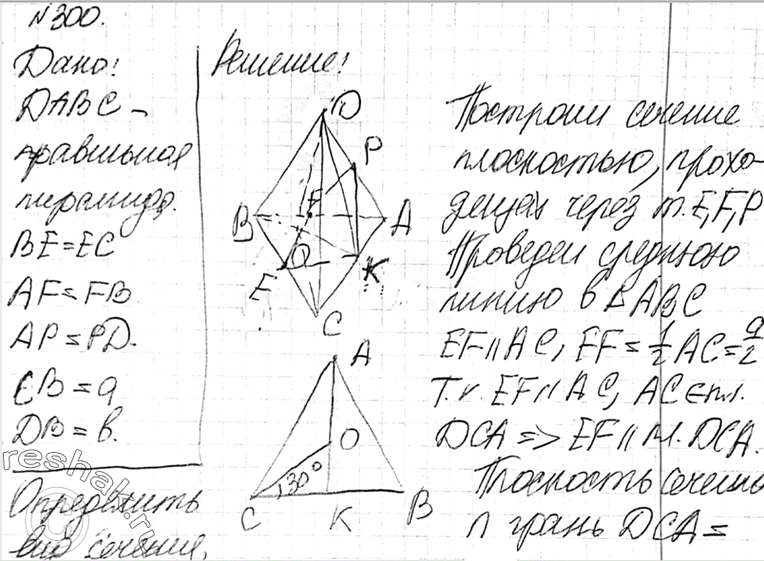 №300.
Дано:
DABC –
правильная
пирамида.
BE=EC
AF=FB
AP=PD.
CB=a
DB=b.
Определить
вид сечения.
Решение:
D
P
F
B
A
O
E
K
C
A
O
30°
C
K
B
Построим сечение
плоскостью, прохо-
дящей через т. E,F,P
Проведем среднюю
линию в ΔABC
EF∥AC, EF=1/2 AC=a/2
Т.к. EF∥AC, AC∈пл.
DCA => EF∥пл. DCA.
Плоскость сечения
∩ грань DCA=
reshak.ru